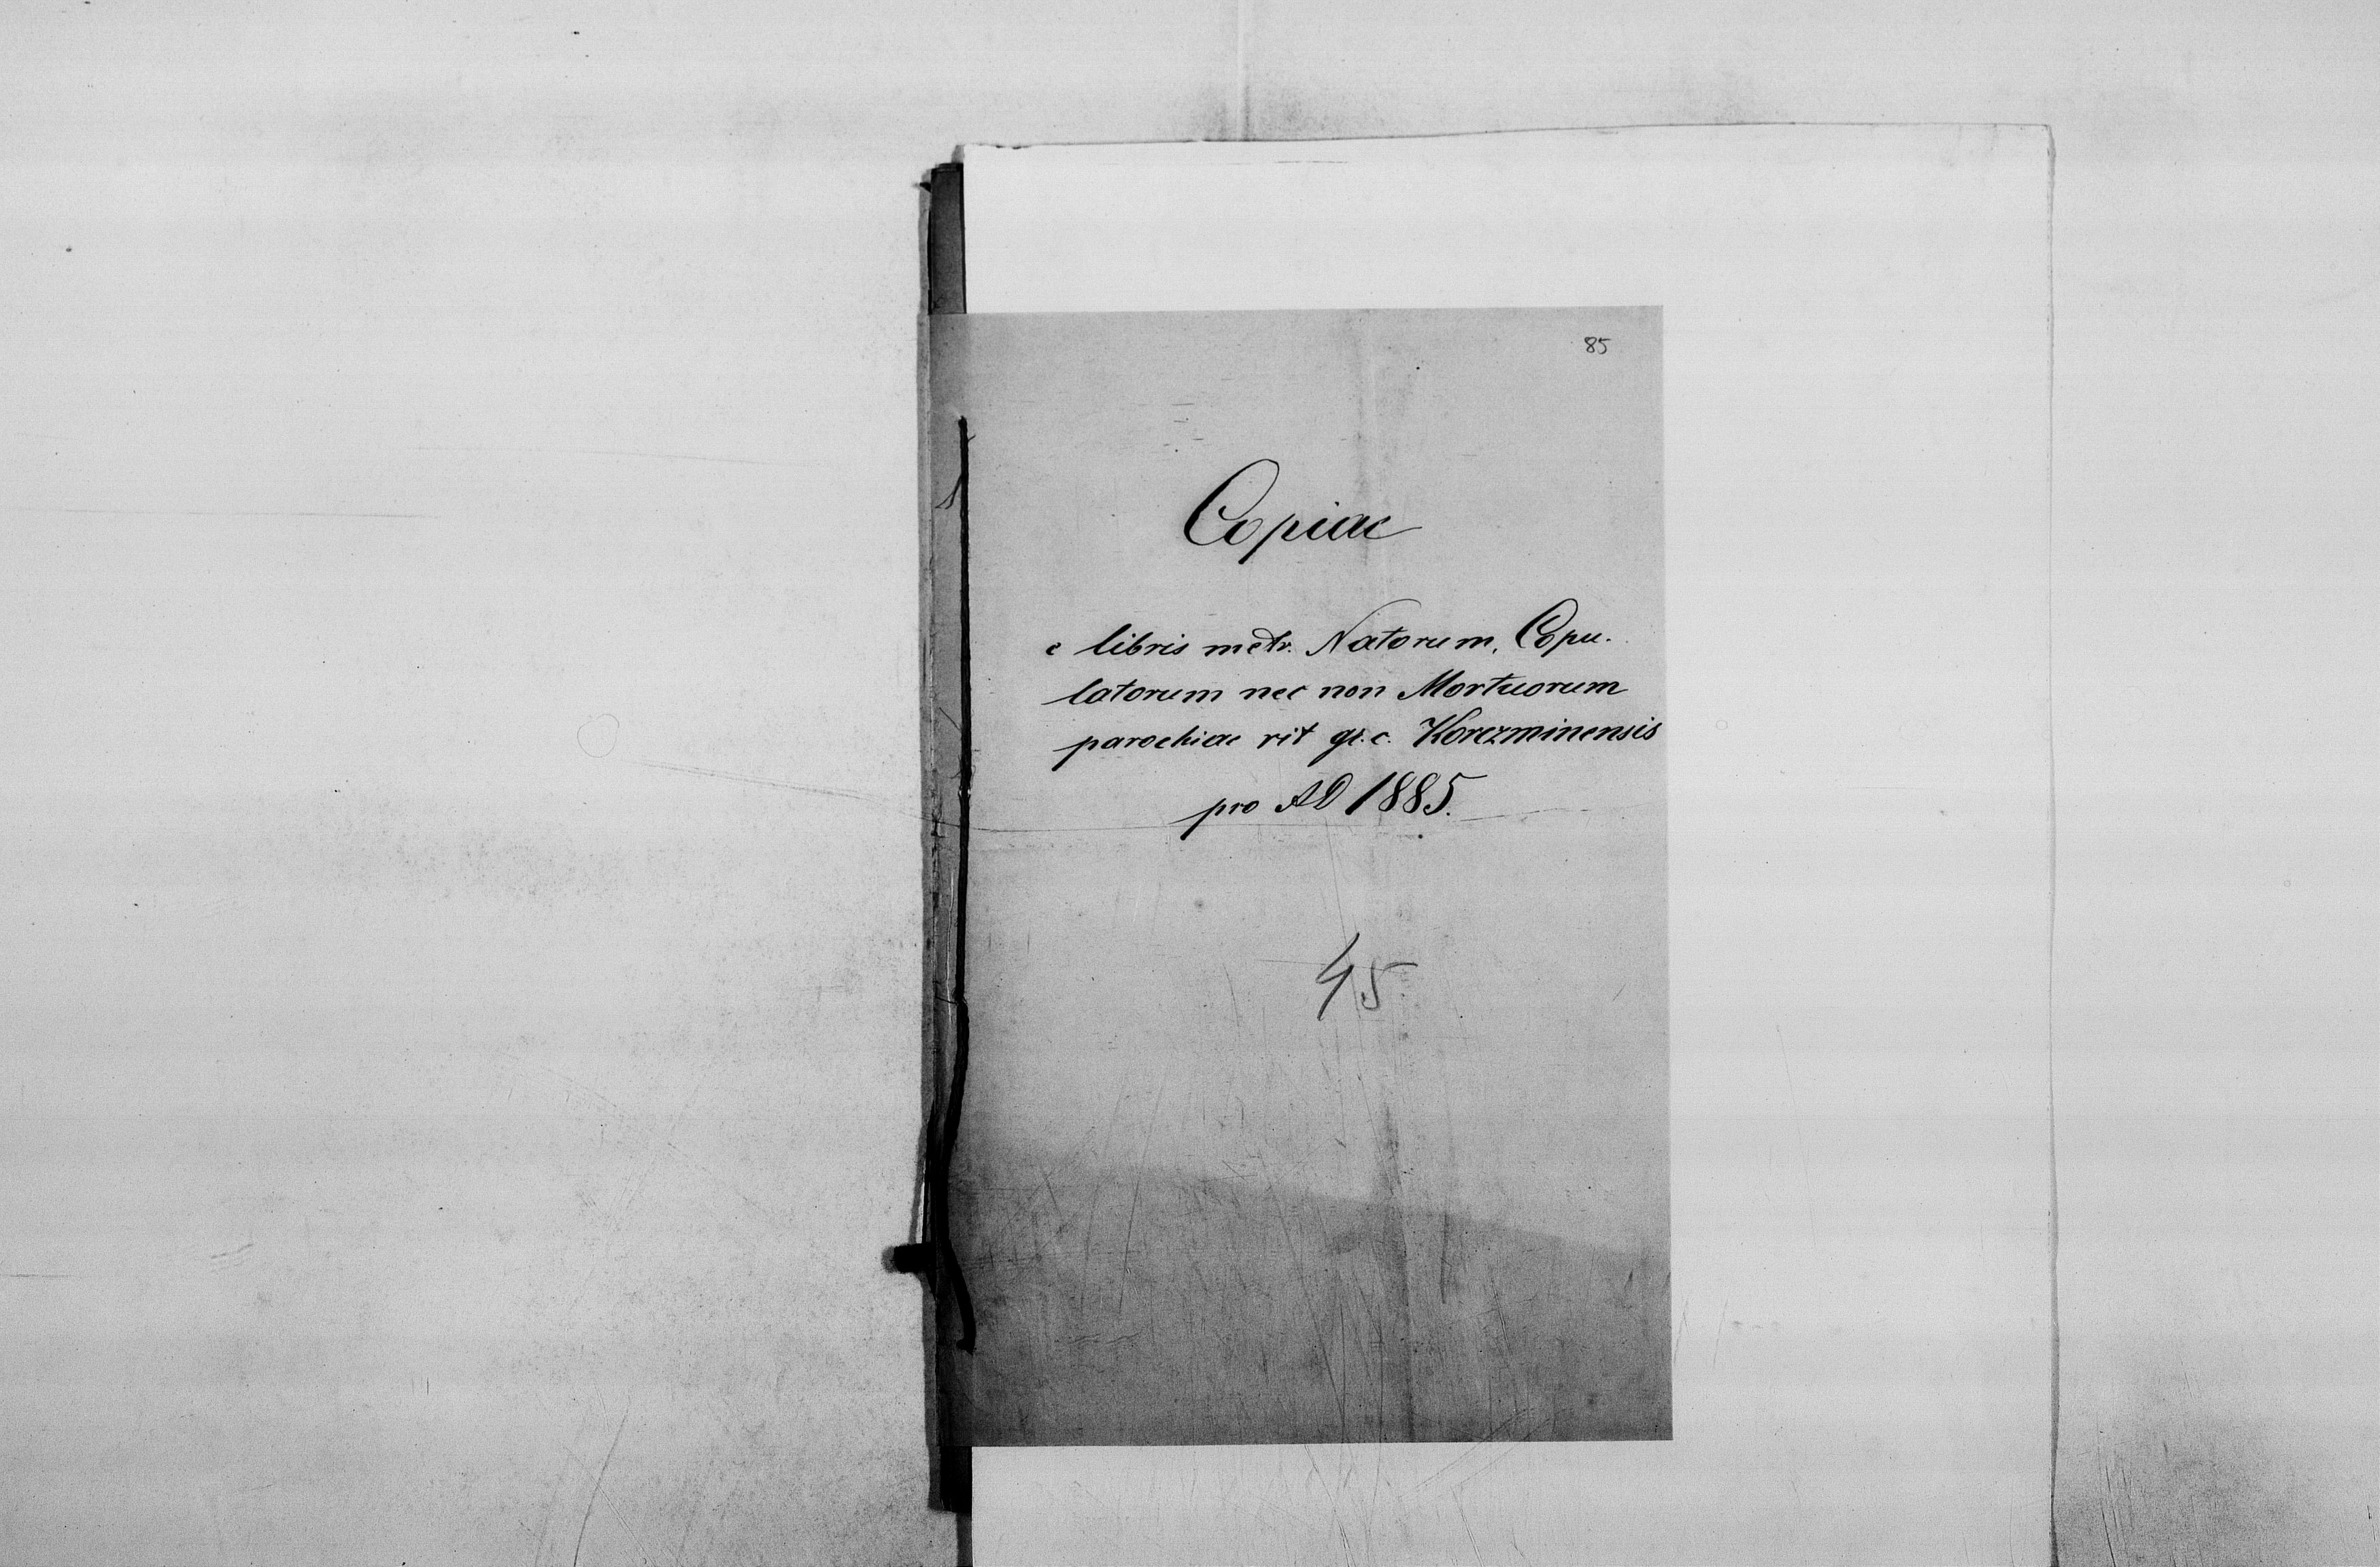 85
Copiae
e libris metr. Natorum, Copu-
latorum nec non Mortuorum
parochiae rit gr. c. Korczminensis
pro AD 1885.
45